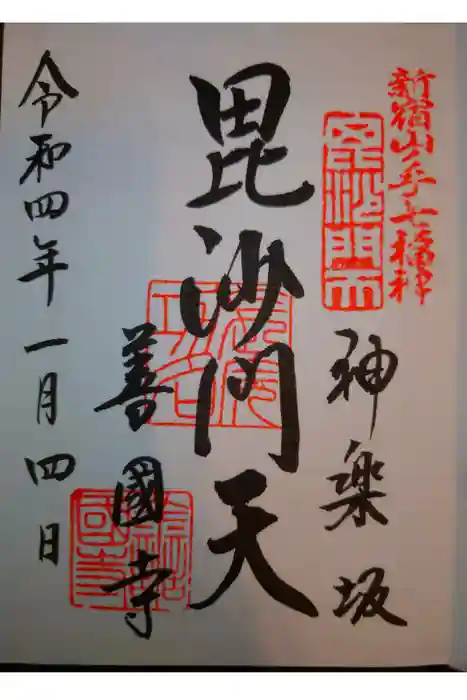 新宿山ノ手七福神
神楽坂
毘沙門天
善國寺
令和四年一月四日